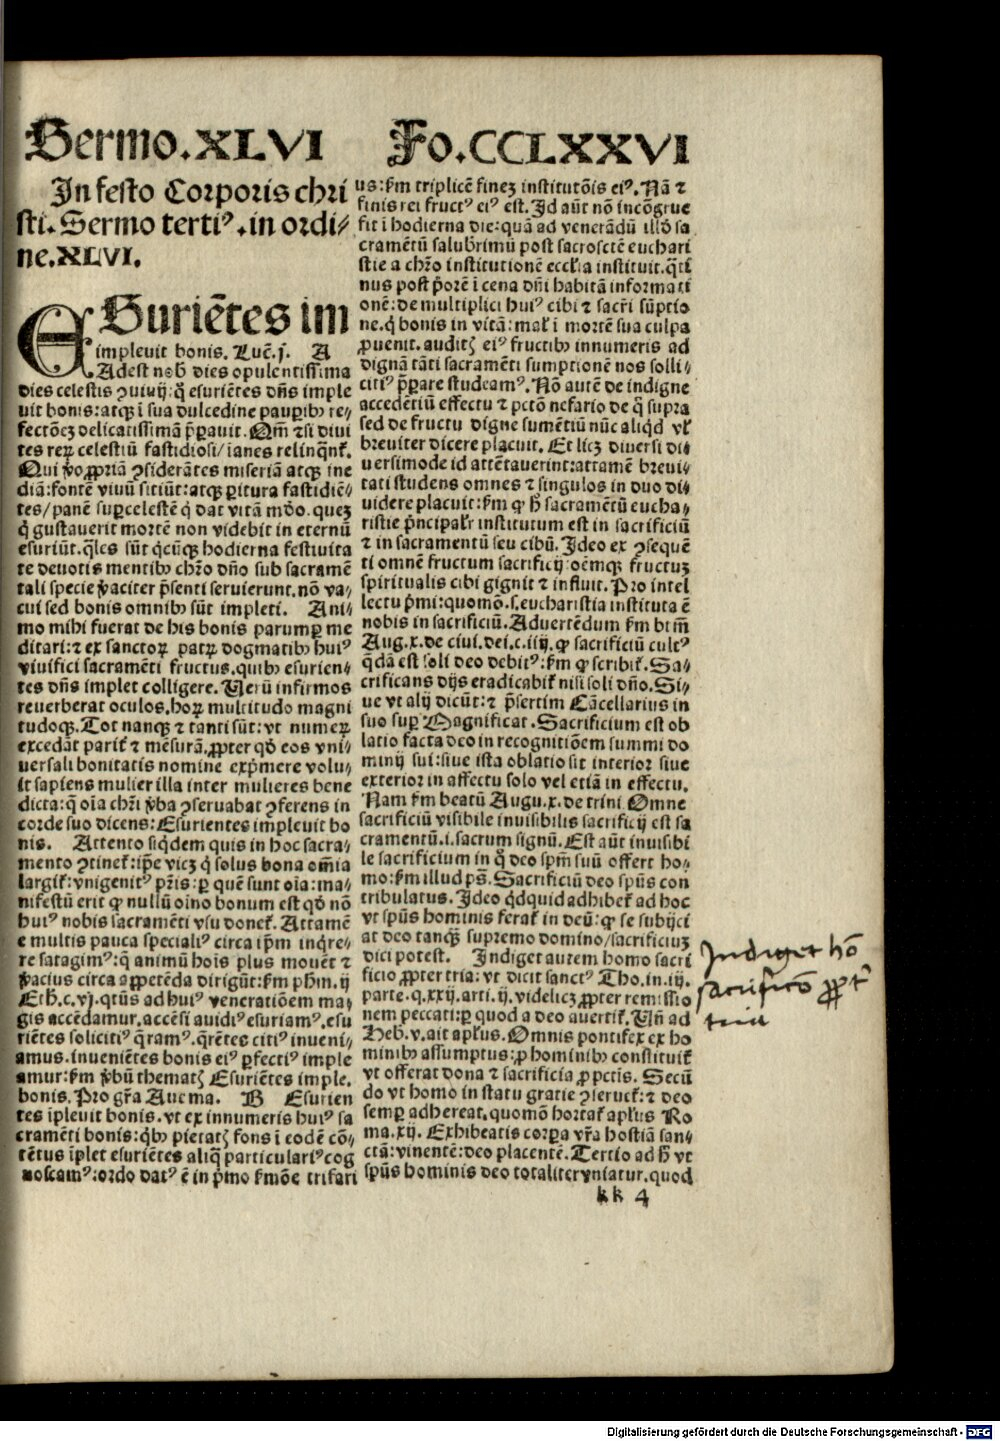 Sermo.XLVI Fo.CCLXXVI
In festo Corporis chri
sti. Sermo tertiꝰ.in ordi⸗
ne.XLVI.
ESuriẽtes im
impleuit bonis. Luc̃.j. A
Adest nob̃ dies opulentissima
dies celestis ꝯuiuij: q̃ esuriẽtes dñs imple
uit bonis: atqꝫ ĩ sua dulcedine pauꝑibꝫ re⸗
fectõeꝫ delicatissimã p̃parauit. Qm̃ ⁊si diui
tes reꝝ celestiũ fastidiosi/ ianes relinq̃nt̃.
Qui v̊o ꝓpriã ꝯsiderãtes miseriã atqꝫ ine
diã: fontẽ viuũ sitiũt: atqꝫ ꝑitura fastidiẽ⸗
tes/ panẽ suꝑcelestẽ q̇ dat vitã mũdo. queꝫ
q̇ gustauerit mortẽ non videbit in eternũ
esuriũt. q̃les sũt q̇cũqꝫ hodierna festiuita
te deuotis mentibꝫ chr̃o dño sub sacramẽ
tali specie ṽaciter p̃senti seruierunt. nõ va⸗
cui sed bonis omnibꝫ sũt impleti. Ani⸗
mo mihi fuerat de his bonis parumꝑ me
ditari: ⁊ ex sanctoꝝ patꝝ dogmatibꝫ huiꝰ
viuifici sacramẽti fructus. quibꝫ esurien⸗
tes dñs implet colligere. Verũ infirmos
reuerberat oculos. hoꝝ multitudo magni
tudoqꝫ. Tot nanqꝫ ⁊ tanti sũt: vt numeꝝ
excedãt parit̃ ⁊ mẽsurã. ꝓpter qd̓ eos vni⸗
uersali bonitatis nomine exp̃mere volu⸗
it sapiens mulier illa inter mulieres bene
dicta: q̃ oĩa chr̃i v̓ba ꝯseruabat ꝯferens in
corde suo dicens: Esurientes impleuit bo
nis. Attento siq̇dem quis in hoc sacra⸗
mento ꝯtinet̃: ip̃e vicꝫ q̇ solus bona om̃ia
largit̃: vnigenitꝰ pr̃is: ꝑ quẽ sunt oĩa: ma⸗
nifestũ erit ꝙ nullũ oĩno bonum est qd̓ nõ
huiꝰ nobis sacramẽti vsu donet̃. Attamẽ
e multis pauca specialiꝰ circa ip̃m inq̇re⸗
re satagimꝰ: q̃ animũ hoĩs plus mouẽt ⁊
ṽacius circa appetẽda dirigũt: ẜm ph̃m. ij
Eth̃. c. vj. q̃tũs ad huiꝰ veneratiõem ma⸗
gis accẽdamur. accẽsi auidiꝰ esuriamꝰ. esu
riẽtes soliciti q̃ramꝰ. q̃rẽtes citiꝰ inueni⸗
amus. inueniẽtes bonis eiꝰ ꝑfectiꝰ imple
amur: ẜm v̓bũ themat̃ Esuriẽtes imple.
bonis. Pro gr̃a Aue ma. B Esurien
tes ĩpleuit bonis. vt ex innumeris huiꝰ sa
cramẽti bonis: q̇bꝫ pietat̃ fons ĩ eodẽ cõ⸗
tẽtus ĩplet esuriẽtes aliq̃ particulariꝰ cog
noscamꝰ: ordo datꝰ ẽ in p̃mo ẜmõe trifari
us: ẜm triplicẽ fineꝫ institutõis eiꝰ. Nã ⁊
finis rei fructꝰ eiꝰ est. Id aũt nõ incõgrue
fit ĩ hodierna die: quã ad venerãdũ illd̓ sa
cramẽtũ salub̓rimũ post sacrosctẽ euchari
stie a chr̃o institutionẽ eccl̃ia instituit. q̃ti
nus post p̓orẽ ĩ cena dñi habitã informati
onẽ: de multiplici huiꝰ cibi ⁊ sacr̃i sũptio
ne. q̇ bonis in vitã: mal̃ ĩ mortẽ sua culpa
ꝓuenit. audit̃ eiꝰ fructibꝫ innumeris ad
dignã tãti sacramẽti sumptionẽ nos solli⸗
citiꝰ p̃parare studeamꝰ. Nõ autẽ de indigne
accedẽtiũ effectu ⁊ pctõ nefario de q̊ supra
sed de fructu digne sumẽtiũ nũc aliq̇d vl̃
breuiter dicere placuit. Et licꝫ diuersi di⸗
uersimode id attẽtauerint: attamẽ breui⸗
tati studens omnes ⁊ singulos in duo di⸗
uidere placuit: ẜm ꝙ h̃ sacramẽtũ eucha⸗
ristie p̃ncipalr̃ institutum est in sacrificiũ
⁊ in sacramentũ seu cibũ. Ideo ex ꝯsequẽ
ti omnẽ fructum sacrificij: oẽmqꝫ fructuꝫ
spiritualis cibi gignit ⁊ influit. Pro intel
lectu p̃mi: quomõ. s. eucharistia instituta ẽ
nobis in sacrificiũ. Aduertẽdum ẜm bt̃m
Aug. x. de ciui. dei. c. iiij. ꝙ sacrificiũ cultꝰ
q̇dã est soli deo debitꝰ: ẜm ꝙ scribit̃. Sa⸗
crificans dijs eradicabit̃ nisi soli dño. Si⸗
ue vt alij dicũt: ⁊ p̃sertim Cãcellarius in
suo suꝑ Magnificat. Sacrificium est ob
latio facta deo in recognitiõem summi do
minij sui: siue ista oblatio sit interior siue
exterior in affectu solo vel etiã in effectu.
Nam ẜm beatũ Augu. x. de trini Omne
sacrificiũ visibile inuisibilis sacrificij est sa
cramentũ. i. sacrum signũ. Est aũt inuisibi
le sacrificium in q̊ deo sp̃m suũ offert ho⸗
mo: ẜm illud ps̃. Sacrificiũ deo sp̃us con
tribulatus. Ideo q̇dquid adhibet̃ ad hoc
vt sp̃us hominis ferat̃ in deũ: ꝙ se subijci
at deo tanqꝫ̃ supremo domino/ sacrificiuꝫ
dici potest. Indiget autem homo sacri
ficio ꝓpter tria: vt dicit sanctꝰ Tho. in. iij.
parte. q. xxij. arti. ij. videlicꝫ ꝓpter remissio
nem peccati: ꝑ quod a deo auertit̃. Vñ ad
Heb. v. ait apl̃us. Omnis pontifex ex ho
minibꝫ assumptus: ꝓ hominibꝫ constituit̃
vt offerat dona ⁊ sacrificia ꝓ pctĩs. Secũ
do vt homo in statu gratie ꝯseruet̃: ⁊ deo
semꝑ adhereat. quomõ hortat̃ apl̃us Ro
ma. xij. Exhibeatis corꝑa vr̃a hostiã san⸗
ctã: viuentẽ: deo placentẽ. Tertio ad h̃ vt
sp̃us hominis deo totaliter vniatur. quod
kk 4
Indiget hõ
sacrificio ꝓpt̃
tria
Digitalisierung gefördert durch die Deutsche Forschungsgemeinschaft - DFG